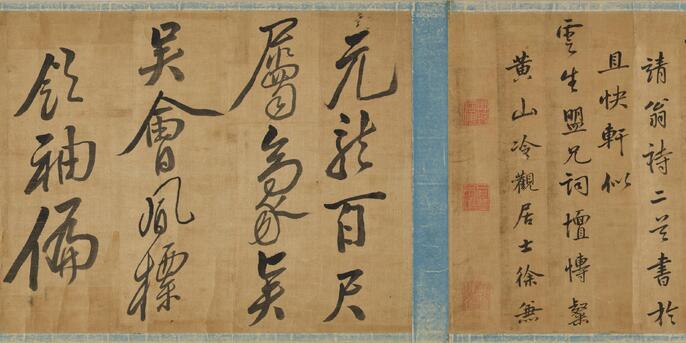 請翁詩二首書於
且快軒似
雲生盟兄詞壇博粲
黃山冷觀居士徐無
元龍百尺
屬豪
吳會風標
領袖偏